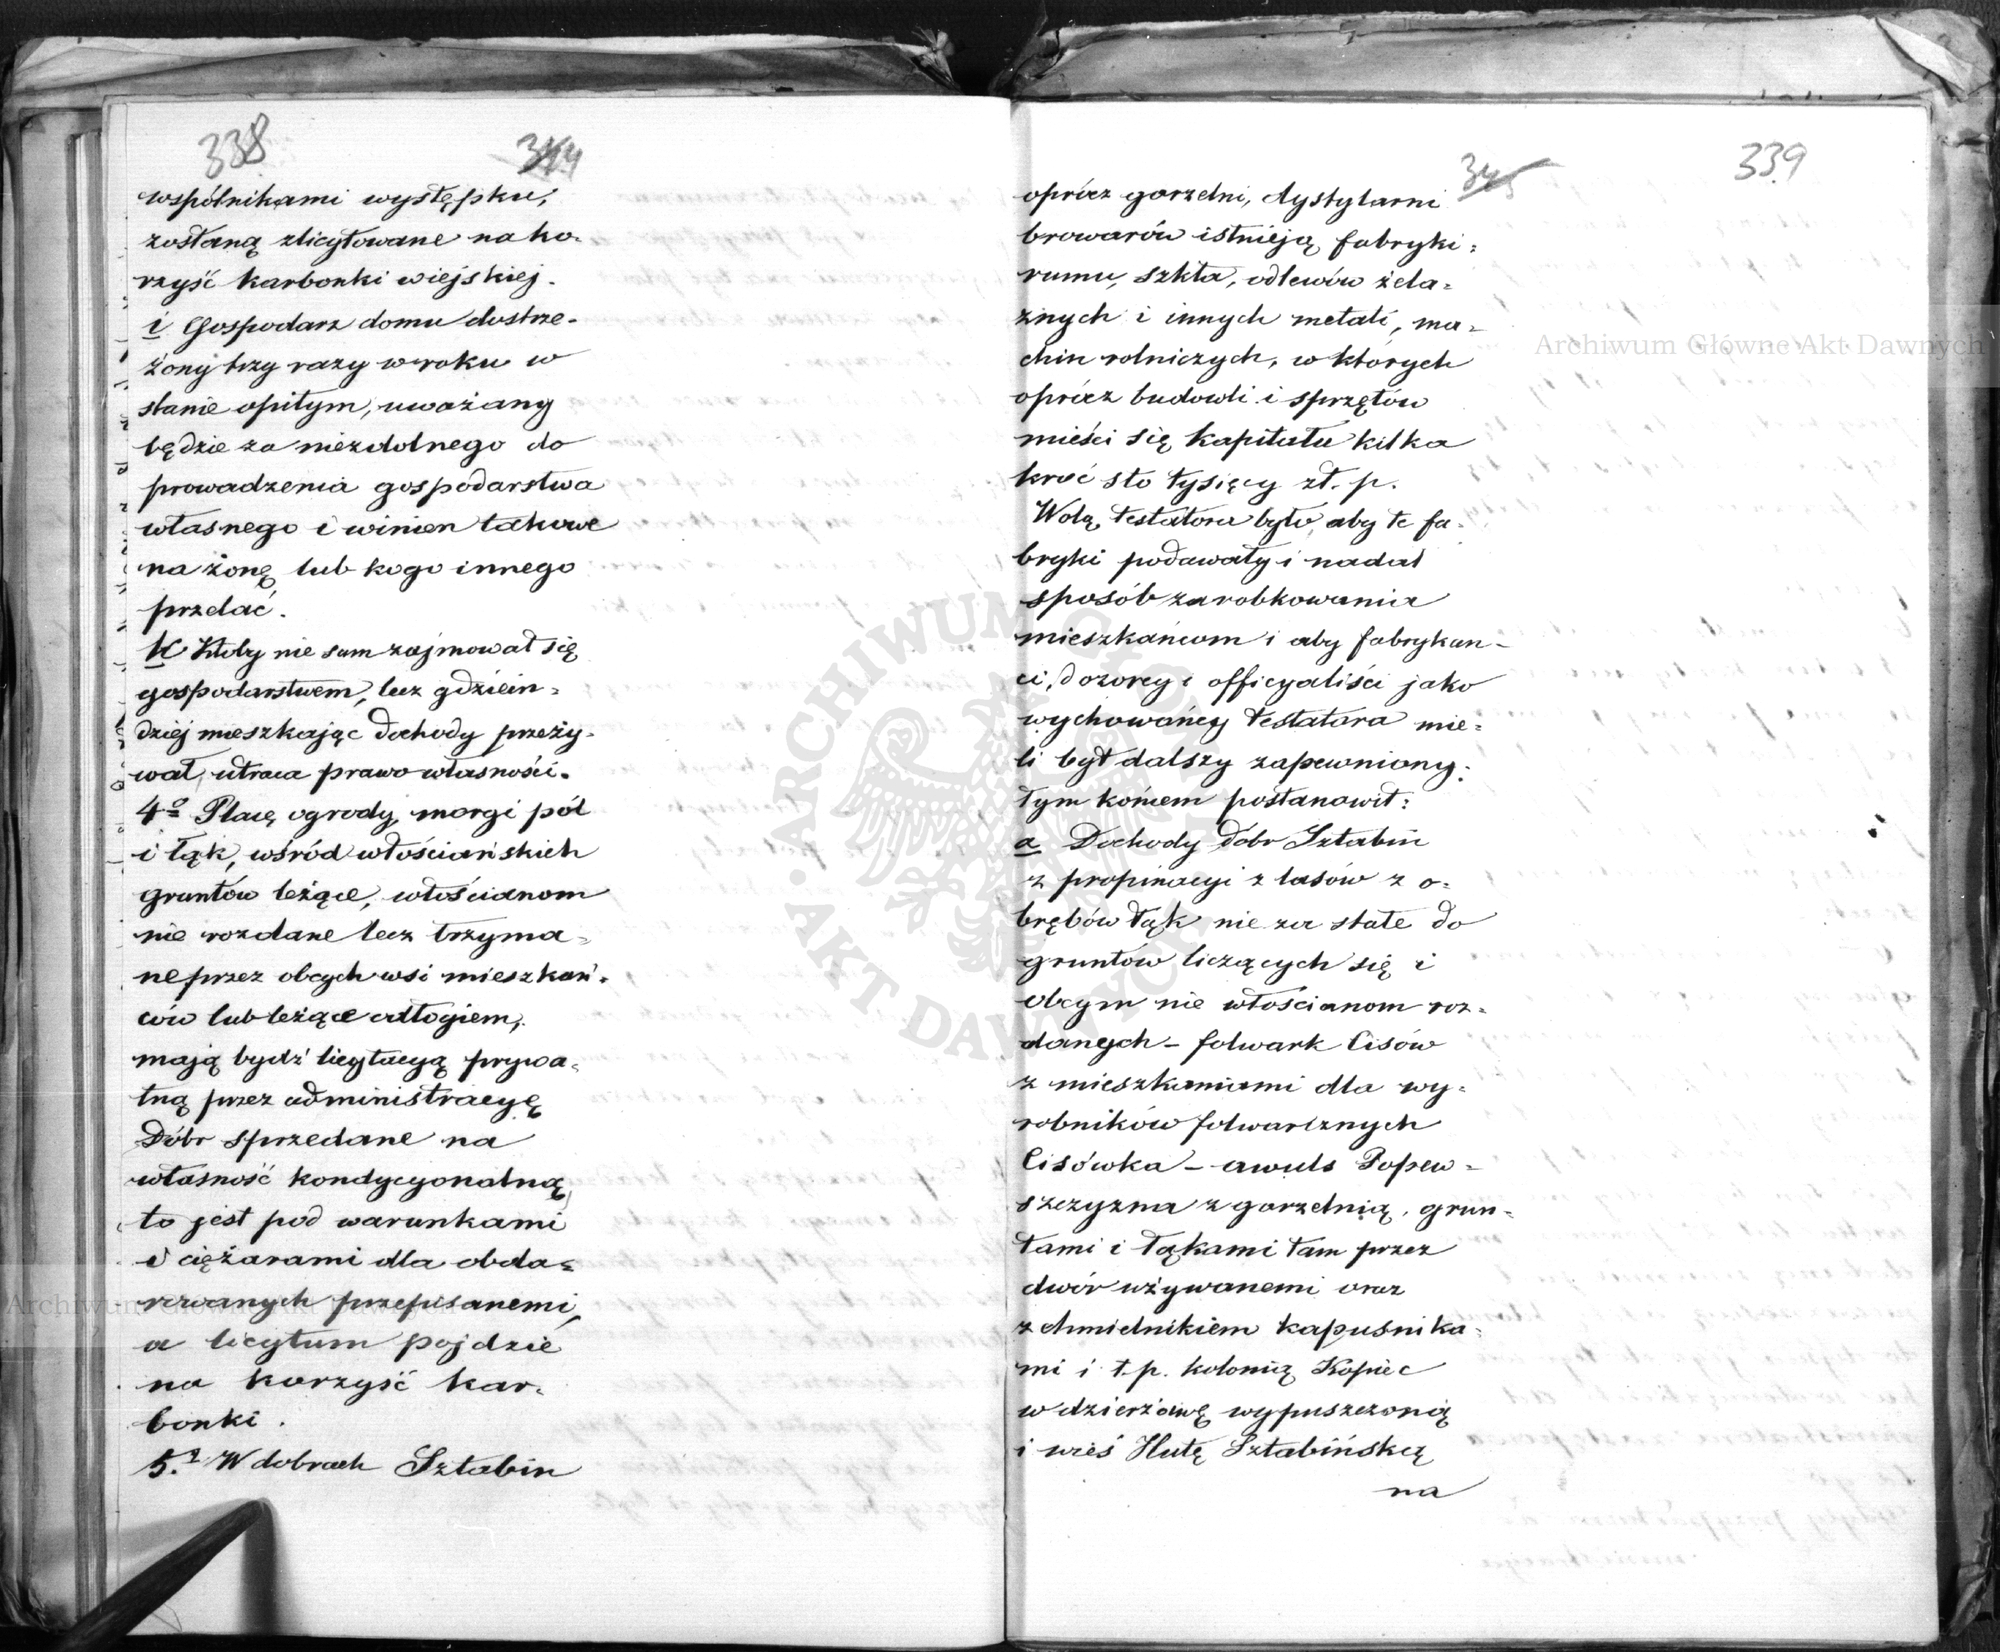 338
344
współnikami występku,
zostaną zlicytowane na ko-
rzyść karbonki wiejskiej.
i Gospodarz domu dostrze-
żony trzy razy w roku w
stanie opitym, uważany
będzie za niezdolnego do
prowadzenia gospodarstwa
własnego i winien takowe
na żonę lub kogo innego
przelać.
k Ktoby nie sam zajmował się
gospodarstwem, lecz gdziein-
dziej mieszkając dochody przeży-
wał, utraca prawo własności.
4º Place, ogrody, morgi pól
i łąk, wśród włościańskich
gruntów leżące, włościanom
nie rozdane lecz trzyma-
ne przez obcych wsi mieszkań-
ców lub leżące odłogiem,
mają bydź licytacyą prywa-
tną przez administracyę
Dóbr sprzedane na
własność kondycyonalną,
to jest pod warunkami
i ciężarami dla obda-
rowanych przepisanemi,
a licytum pojdzie
na korzyść kar-
bonki.
5. W dobrach Sztabin
345
339
oprócz gorzelni, dystylarni
browarów istnieją fabryki:
rumu, szkła, odlewów żela-
znych i innych metali, ma-
chin rolniczych, w których
oprócz budowli i sprzętów
mieści się kapitału kilka
kroć sto tysięcy zł. p.
Wolą testatora było, aby te fa-
bryki podawały i nadal
sposób zarobkowania
mieszkańcom i aby fabrykan-
ci, dozorcy i officyaliści jako
wychowańcy testatora mie-
li byt dalszy zapewniony;
tym końcem postanowił:
a Dochody dóbr Sztabin
z propinacyi z lasów z o-
brębów łąk nie za stałe do
gruntów liczących się i
obcym nie włościanom roz-
danych - folwark Cisów
z mieszkaniami dla wy-
robników folwarcznych
Cisówka - awuls Popow-
szczyzna z gorzelnią, grun-
tami i łąkami tam przez
dwór używanemi oraz
z chmielnikiem kapuśnika-
mi i t.p. kolonią Kopiec
w dzierżawę wypuszczoną
i wieś Hutę Sztabińską
na
Archiwum Główne Akt Dawnych
ARCHIWUM GŁÓWNE AKT DAWNYCH